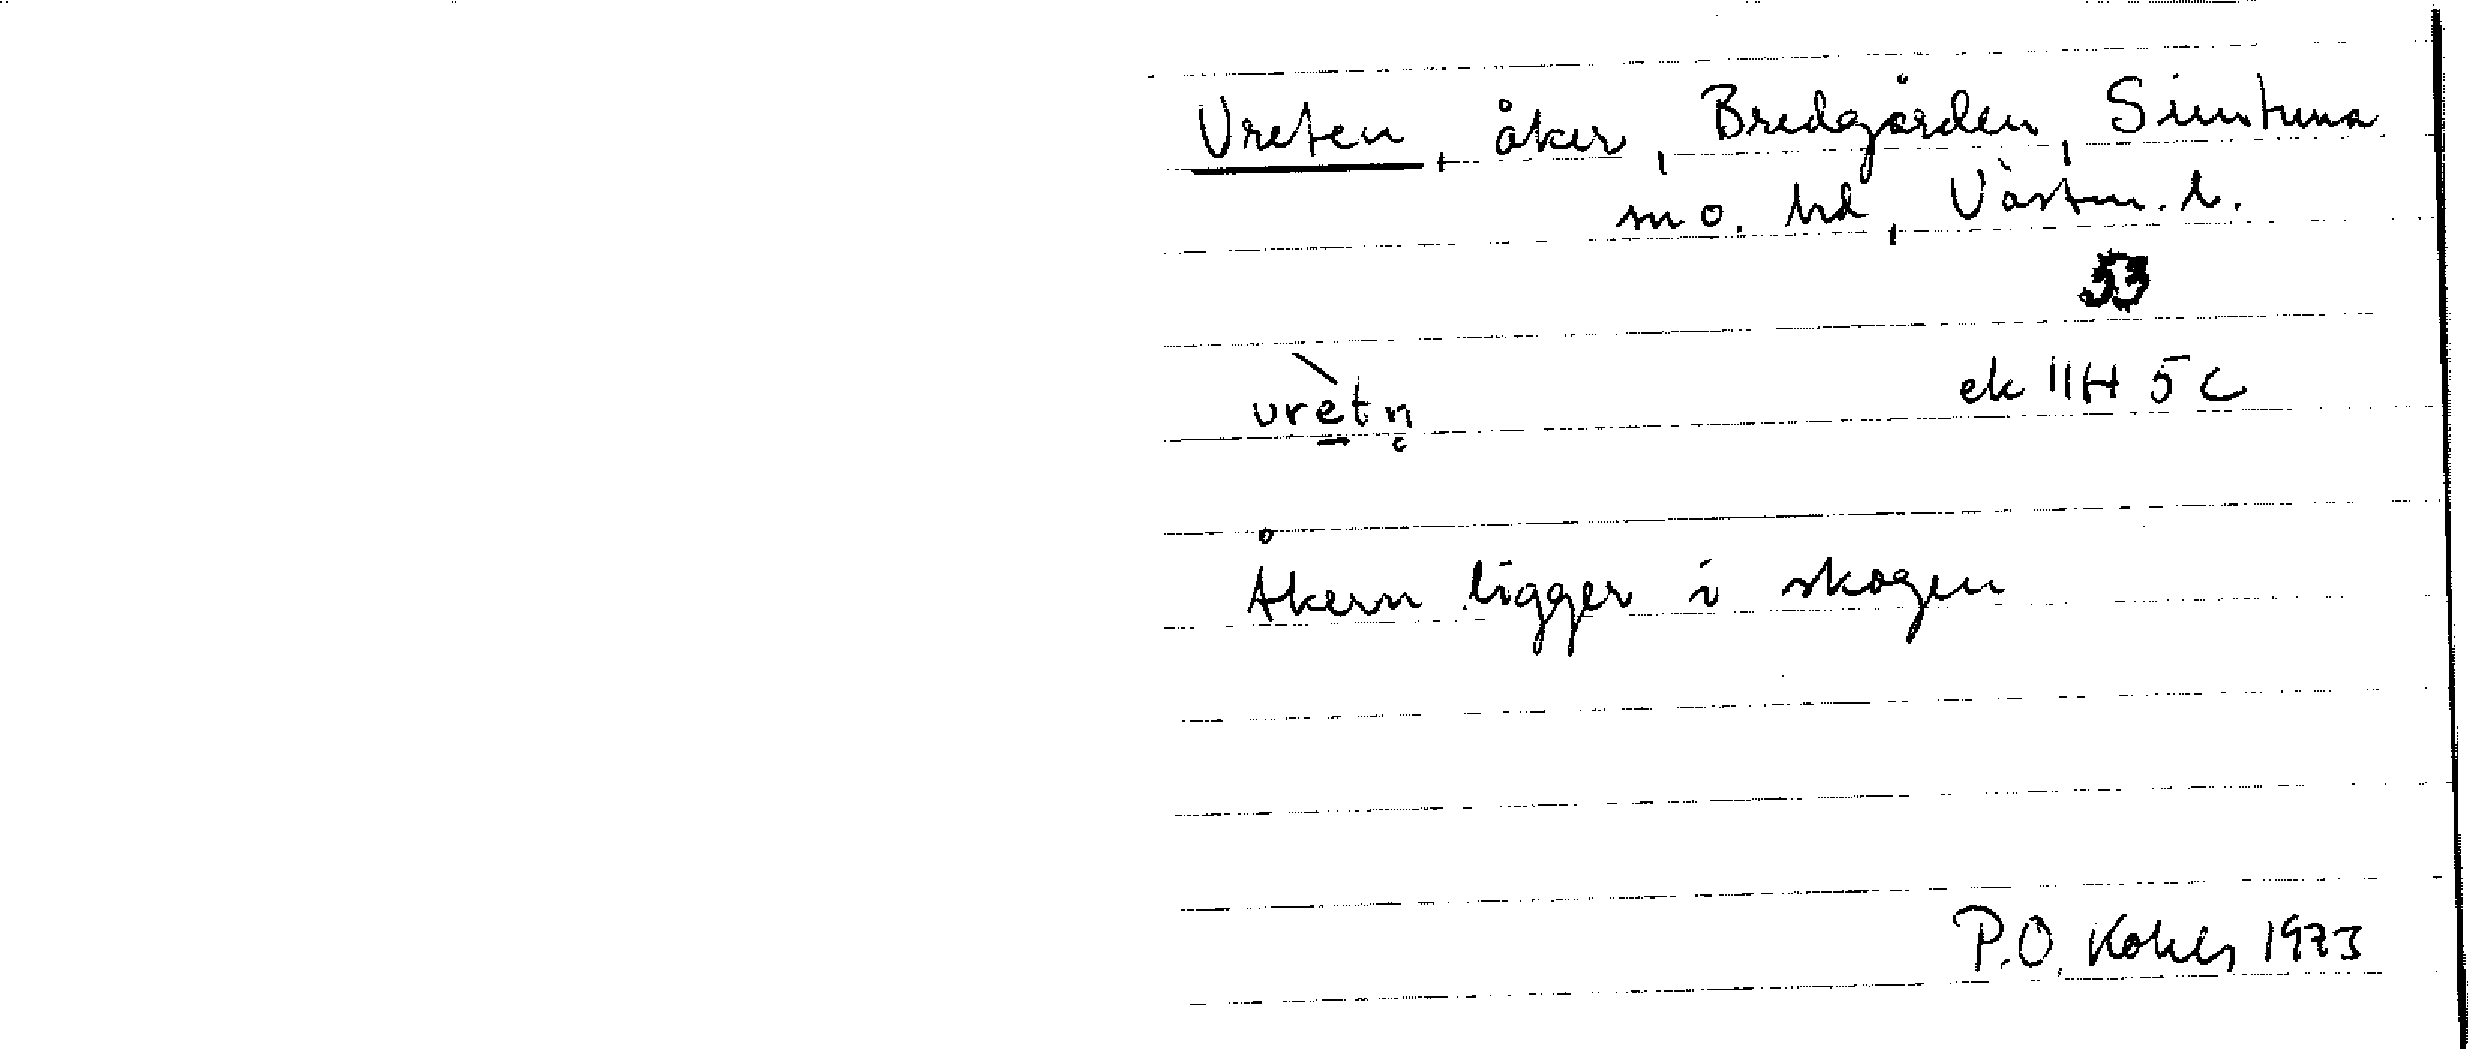 Vreten, åker, Bredgården, Simtuna
sn o. hd, Västm. l.
53
ek 11H 5c
vretn̥
Åkern ligger i skogen
P.O. 1973